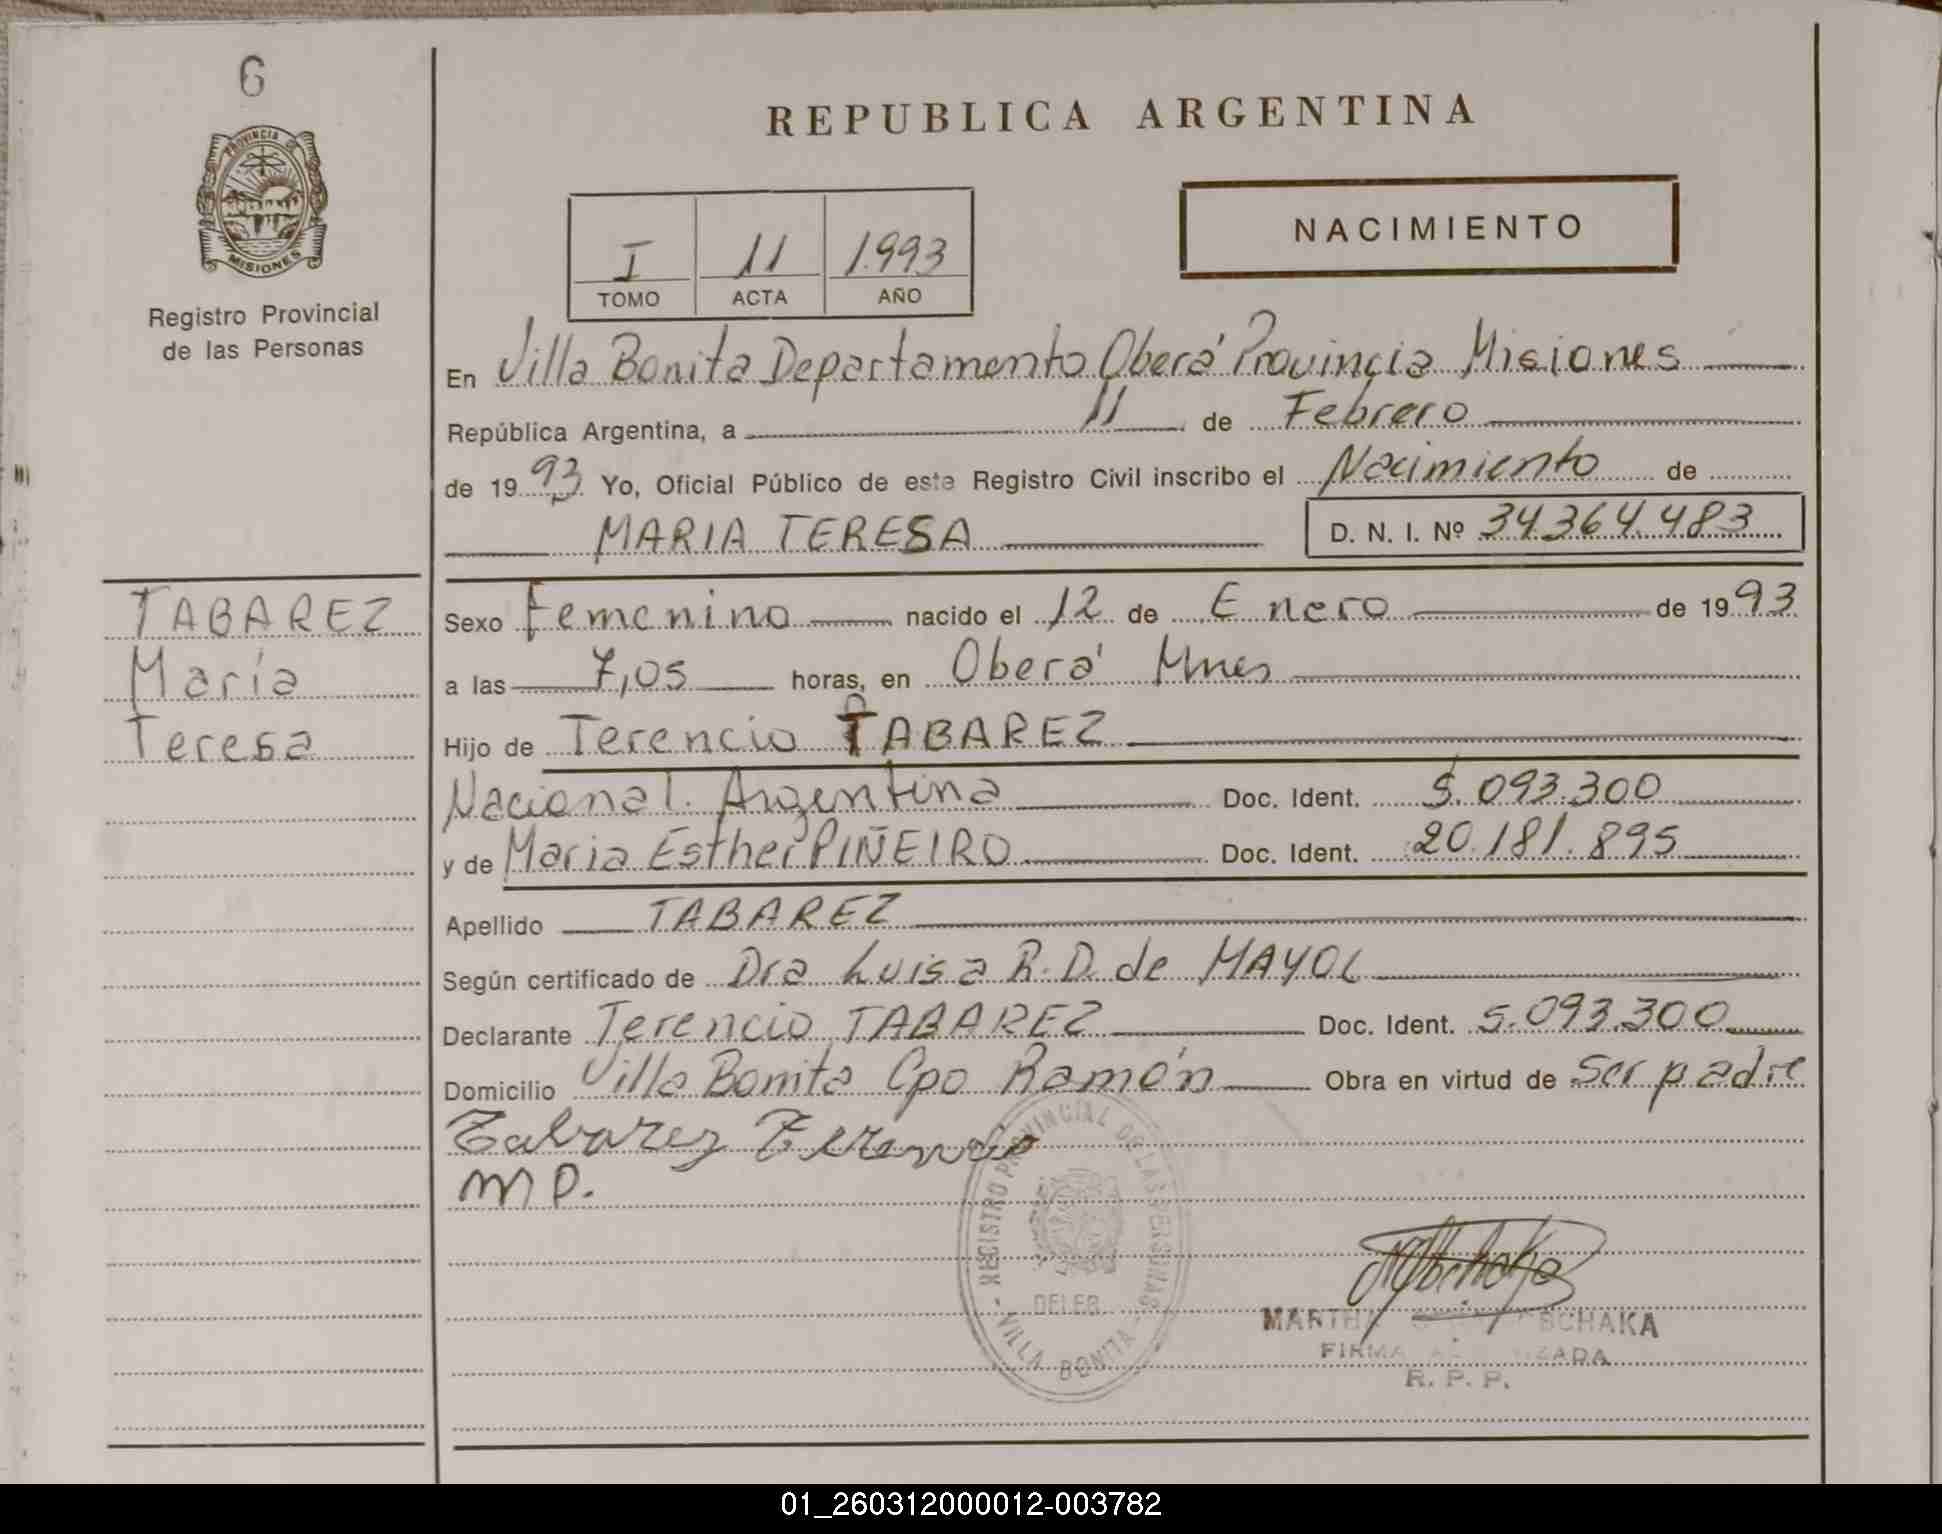 6
PROVINCIA DE
MISIONES
Registro Provincial
de las Personas
REPUBLICA ARGENTINA
NACIMIENTO
I 11 1.993
TOMO ACTA AÑO
En Villa Bonita Departamento Oberá Provincia Misiones
República Argentina, a 11 de Febrero
de 1993 Yo, Oficial Público de este Registro Civil inscribo el Nacimiento de
MARIA TERESA D. N. I. Nº 34.364.483
TABAREZ
María
Teresa
Sexo Femenino nacido el 12 de Enero de 1993
a las 7,05 horas, en Oberá Mnes
Hijo de Terencio TABAREZ
Nacional. Argentina Doc. Ident. 5.093.300
y de Maria Esther PIÑEIRO Doc. Ident. 20.181.895
Apellido TABAREZ
Según certificado de Dra Luisa R. D. de MAYOL
Declarante Terencio TABAREZ Doc. Ident. 5.093.300
Domicilio Villa Bonita Cpo Ramón Obra en virtud de Ser padre
Tabarez Terencio
M P.
REGISTRO PROVINCIAL DE LAS PERSONAS
- VILLA BONITA -
MARTHA
FIRMA
R. P. P.
01_260312000012-003782